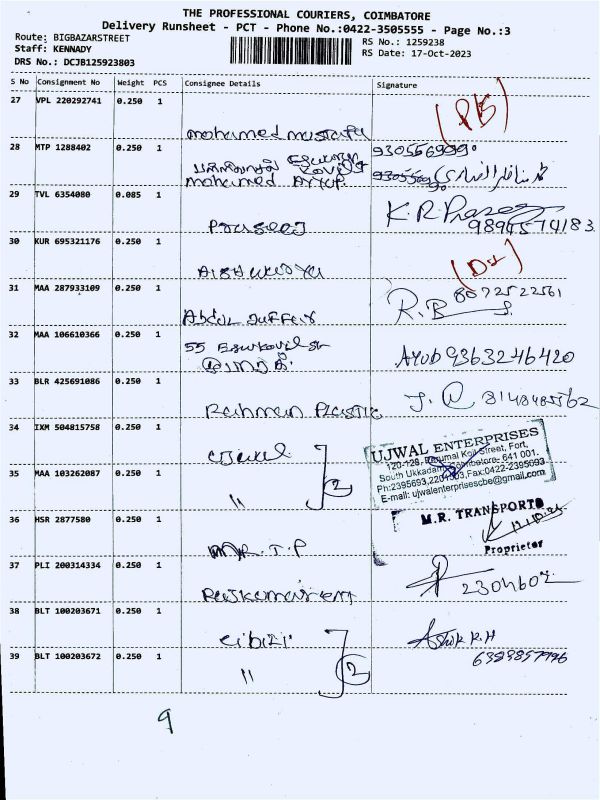 THE PROFESSIONAL COURIERS, COIMBATORE
Delivery Runsheet - PCT - Phone No.:0422-3505555 - Page No.:3
Route: BIGBAZARSTREET
RS No.: 1259238
Staff: KENNADY
RS Date: 17-Oct-2023
DRS No.: DCJB125923803
S No Consignment No Weight PCS Consignee Details Signature
27 VPL 220292741 0.250 1
mohamed mustafa
28 MTP 1288402 0.250 1
mohamed Ayyup
29 TVL 6354080 0.085 1
K.R.
30 KUR 695321176 0.250 1
31 MAA 287933109 0.250 1
Abdul Jaffer
R.B
8072522561
32 MAA 106610366 0.250 1
55
AYUB 9363246420
33 BLR 425691086 0.250 1
Rahman Plastic
34 IXM 504815758 0.250 1
UJWAL ENTERPRISES
120-128, Perumal Koil Street, Fort,
South Ukkadam, Coimbatore- 641 001.
Ph:2395693, Fax:0422-2395093
E-mail: ujwalenterprisescbe@gmail.com
35 MAA 103262087 0.250 1
"
2
36 HSR 2877580 0.250 1
M.R.T.P
M.R. TRANSPORTS
Proprietor
37 PLI 200314334 0.250 1
2304602
38 BLT 100203671 0.250 1
Ashok R.H
39 BLT 100203672 0.250 1
"
2
9